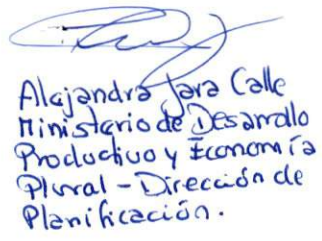 Alejandra Jara Calle
Ministerio de Desarrollo
Productivo y Economía
Plural - Dirección de
Planificación.